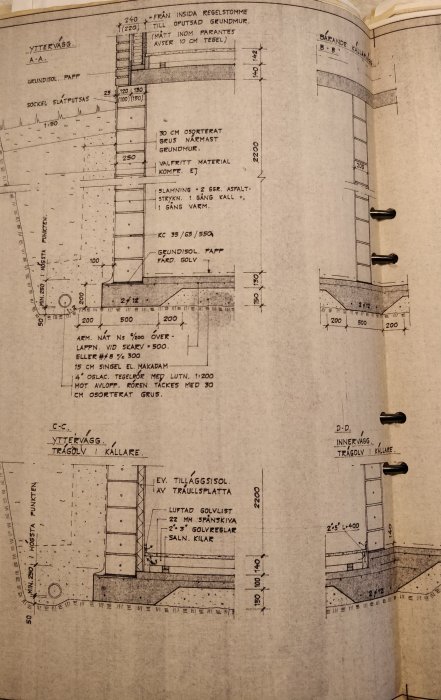 240
(220)
FRÅN INSIDA REGELSTOMME
TILL OPUTSAD GRUNDMUR.
(MÅTT INOM PARANTES
AVSER 10 CM TEGEL)
YTTERVÄGG.
A-A.
GRUNDISOL. PAPP
SOCKEL SLÄTPUTSAS
25
120 130
(100) (150)
142
140
1:50
30 CM OSORTERAT
GRUS NÄRMAST
GRUNDMUR.
250
VALFRITT MATERIAL
KOMPR. EJ
2200
SLAMNING + 2 GGR. ASFALT-
STRYKN. 1 GÅNG KALL +,
1 GÅNG VARM.
KC 35/65/550,
GRUNDISOL. PAPP
FÄRD. GOLV
100
MIN. 250 I HÖGSTA PUNKTEN.
50
2 # 12
130
150
200 500 200
ARM. NÄT NS 5/200 ÖVER-
LAPPN. VID SKARV = 500
ELLER # 8 % 300
15 CM SINGEL EL. MAKADAM
4" OGLAC. TEGELRÖR MED LUTN. 1:200
MOT AVLOPP. RÖREN TÄCKES MED 30
CM OSORTERAT GRUS.
BÄRANDE
B-B.
2 # 12
200 500 200
C-C.
YTTERVÄGG.
TRÄGOLV I KÄLLARE.
EV. TILLÄGGSISOL.
AV TRÄULLSPLATTA
2200
LUFTAD GOLVLIST
22 MM SPÅNSKIVA
2"×3" GOLVREGLAR
SALN. KILAR
MIN. 250 I HÖGSTA PUNKTEN.
50
140
100
150
D-D.
INNERVÄGG.
TRÄGOLV I KÄLLARE.
2"×5" L=400
2 # 12